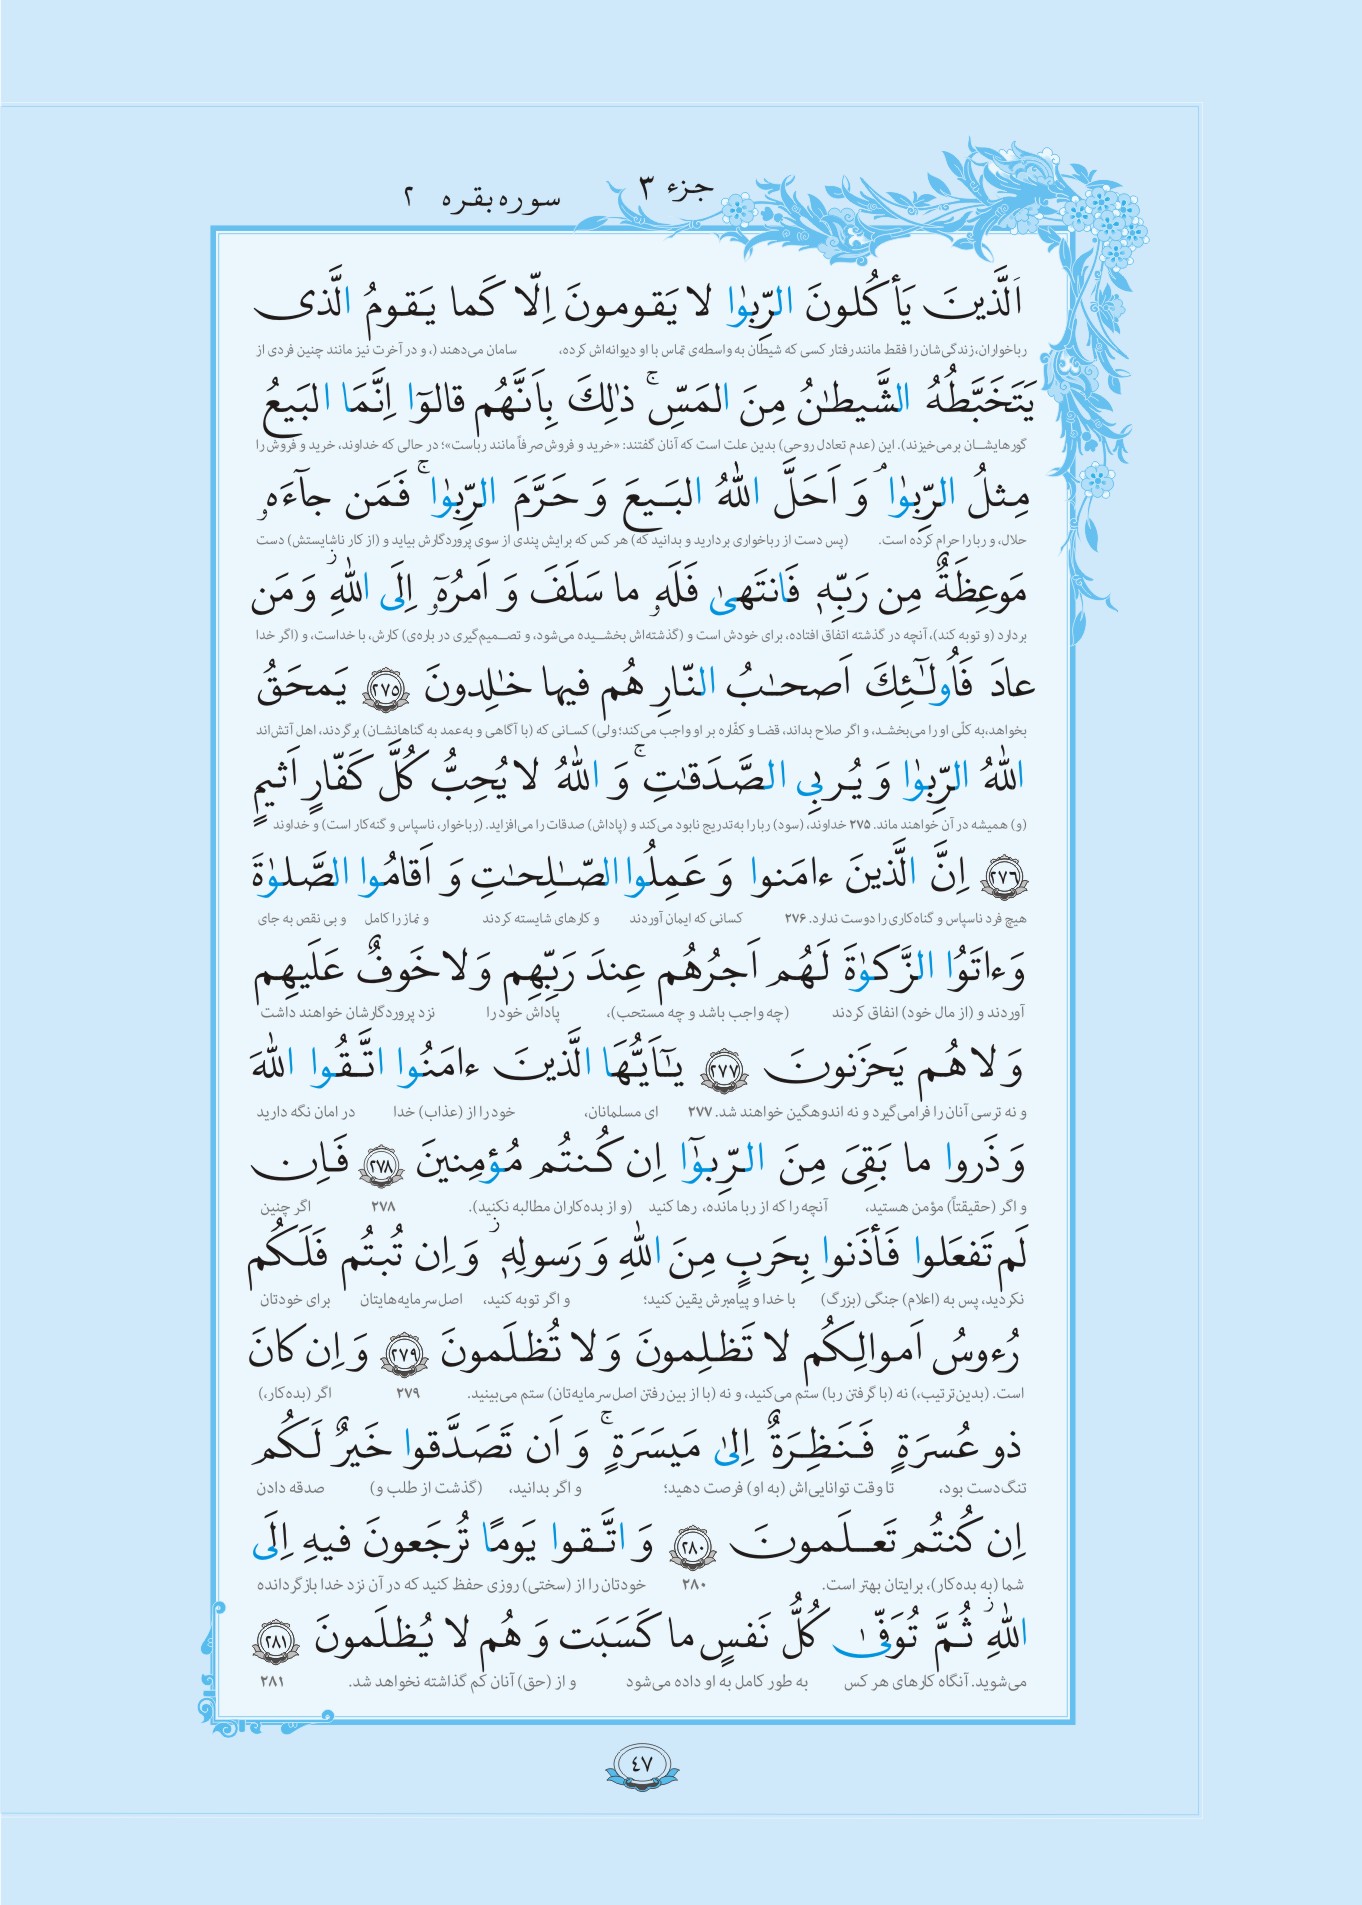 جزء ٣
سوره بقره ٢
اَلَّذينَ يَأكُلونَ الرِّبوٰا لا يَقومونَ اِلّا كَما يَقومُ الَّذى
رباخواران، زندگی‌شان را فقط مانند رفتار کسی که شیطان به واسطه‌ی تماس با او دیوانه‌اش کرده، سامان می‌دهند (، و در آخرت نیز مانند چنین فردی از
يَتَخَبَّطُهُ الشَّيطـٰنُ مِنَ المَسِّ ۚ ذٰلِكَ بِاَنَّهُم قالوٓا اِنَّمَا البَيعُ
گورهایشـان برمی‌خیزند). این (عدم تعادل روحی) بدین علت است که آنان گفتند: «خرید و فروش صرفاً مانند رباست»؛ در حالی که خداوند، خرید و فروش را
مِثلُ الرِّبوٰا ۘ وَ اَحَلَّ اللّٰهُ البَـيعَ وَ حَرَّمَ الرِّبوٰا ۚ فَمَن جآءَهۥ
حلال، و ربا را حرام کرده است. (پس دست از رباخواری بردارید و بدانید که) هر کس که برایش پندی از سوی پروردگارش بیاید و (از کار ناشایستش) دست
مَوعِظَةٌ مِن رَبِّهٖ فَانتَهىٰ فَلَهۥ ما سَلَفَ وَ اَمرُهۥٓ اِلَى اللّٰهِ ز وَ مَن
بردارد (و توبه کند)، آنچه در گذشته اتفاق افتاده، برای خودش است و (گذشته‌اش بخشـیده می‌شود، و تصـمیم‌گیری در باره‌ی) کارش، با خداست، و (اگر خدا
عادَ فَاُولـٰٓئِكَ اَصحـٰبُ النّارِ هُم فيها خـٰلِدونَ ﴿٢٧٥﴾ يَمحَقُ
بخواهد، به کلّی او را می‌بخشـد، و اگر صلاح بداند، قضا و کفّاره بر او واجب می‌کند؛ ولی) کسـانی که (با آگاهی و به‌عمد به گناهانشـان) برگردند، اهل آتش‌اند
اللّٰهُ الرِّبوٰا وَ يُـربِى الصَّدَقـٰتِ ۚ وَ اللّٰهُ لا يُحِبُّ كُلَّ كَفّارٍ اَثيمٍ
(و) همیشه در آن خواهند ماند. ۲۷۵ خداوند، (سود) ربا را به‌تدریج نابود می‌کند و (پاداش) صدقات را می‌افزاید. (رباخوار، ناسپاس و گنه‌کار است) و خداوند
﴿٢٧٦﴾ اِنَّ الَّذينَ ءامَنوا وَ عَمِلُوا الصّـٰلِحـٰتِ وَ اَقامُوا الصَّلوٰةَ
هیچ فرد ناسپاس و گناه‌کاری را دوست ندارد. ۲۷۶ کسانی که ایمان آوردند و کارهای شایسته کردند و نماز را کامل و بی نقص به جای
وَ ءاتَوُا الزَّكوٰةَ لَهُم اَجرُهُم عِندَ رَبِّهِم وَ لا خَوفٌ عَلَيهِم
آوردند و (از مال خود) انفاق کردند (چه واجب باشد و چه مستحب)، پاداش خود را نزد پروردگارشان خواهند داشت
وَ لا هُم يَحزَنونَ ﴿٢٧٧﴾ يـٰٓاَيُّهَا الَّذينَ ءامَنُوا اتَّقُوا اللّٰهَ
و نه ترسی آنان را فرامی‌گیرد و نه اندوهگین خواهند شد. ۲۷۷ ای مسلمانان، خود را از (عذاب) خدا در امان نگه دارید
وَ ذَروا ما بَقِىَ مِنَ الرِّبوٰٓا اِن كُنتُم مُؤمِنينَ ﴿٢٧٨﴾ فَاِن
و اگر (حقیقتاً) مؤمن هستید، آنچه را که از ربا مانده، رها کنید (و از بده‌کاران مطالبه نکنید). ۲۷۸ اگر چنین
لَم تَفعَلوا فَأذَنوا بِحَربٍ مِنَ اللّٰهِ وَ رَسولِهٖ ز وَ اِن تُبتُم فَلَكُم
نکردید، پس به (اعلام) جنگی (بزرگ) با خدا و پیامبرش یقین کنید؛ و اگر توبه کنید، اصل سرمایه‌هایتان برای خودتان
رُءوسُ اَموالِكُم لا تَظلِمونَ وَ لا تُظلَمونَ ﴿٢٧٩﴾ وَ اِن كانَ
است. (بدین‌ترتیب،) نه (با گرفتن ربا) ستم می‌کنید، و نه (با از بین رفتن اصل سرمایه‌تان) ستم می‌بینید. ۲۷۹ اگر (بده‌کار،)
ذو عُسرَةٍ فَنَظِرَةٌ اِلىٰ مَيسَرَةٍ ۚ وَ اَن تَصَدَّقوا خَيرٌ لَكُم
تنگ‌دست بود، تا وقت توانایی‌اش (به او) فرصت دهید؛ و اگر بدانید، (گذشت از طلب و) صدقه دادن
اِن كُنتُم تَعـلَمونَ ﴿٢٨٠﴾ وَ اتَّقوا يَومًا تُرجَعونَ فيهِ اِلَى
شما (به بده‌کار)، برایتان بهتر است. ۲۸۰ خودتان را از (سختی) روزی حفظ کنید که در آن نزد خدا بازگردانده
اللّٰهِ ز ثُمَّ تُوَفّىٰ كُلُّ نَفسٍ ما كَسَبَت وَ هُم لا يُظلَمونَ ﴿٢٨١﴾
می‌شوید. آنگاه کارهای هر کس به طور کامل به او داده می‌شود و از (حق) آنان کم گذاشته نخواهد شد. ۲۸۱
٤٧